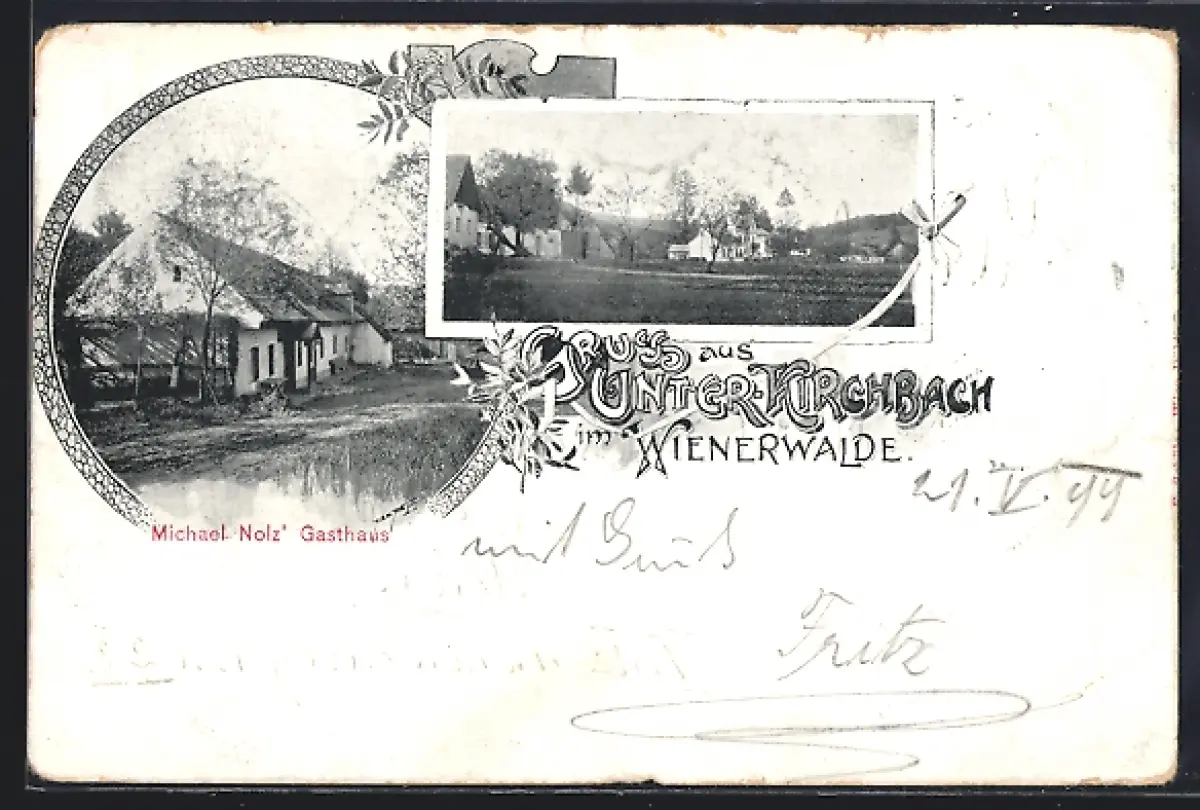 Gruss aus
Unter-Kirchbach
im Wienerwalde.
Michael Nolz' Gasthaus
21. V. 99
mit Gruß
Fritz